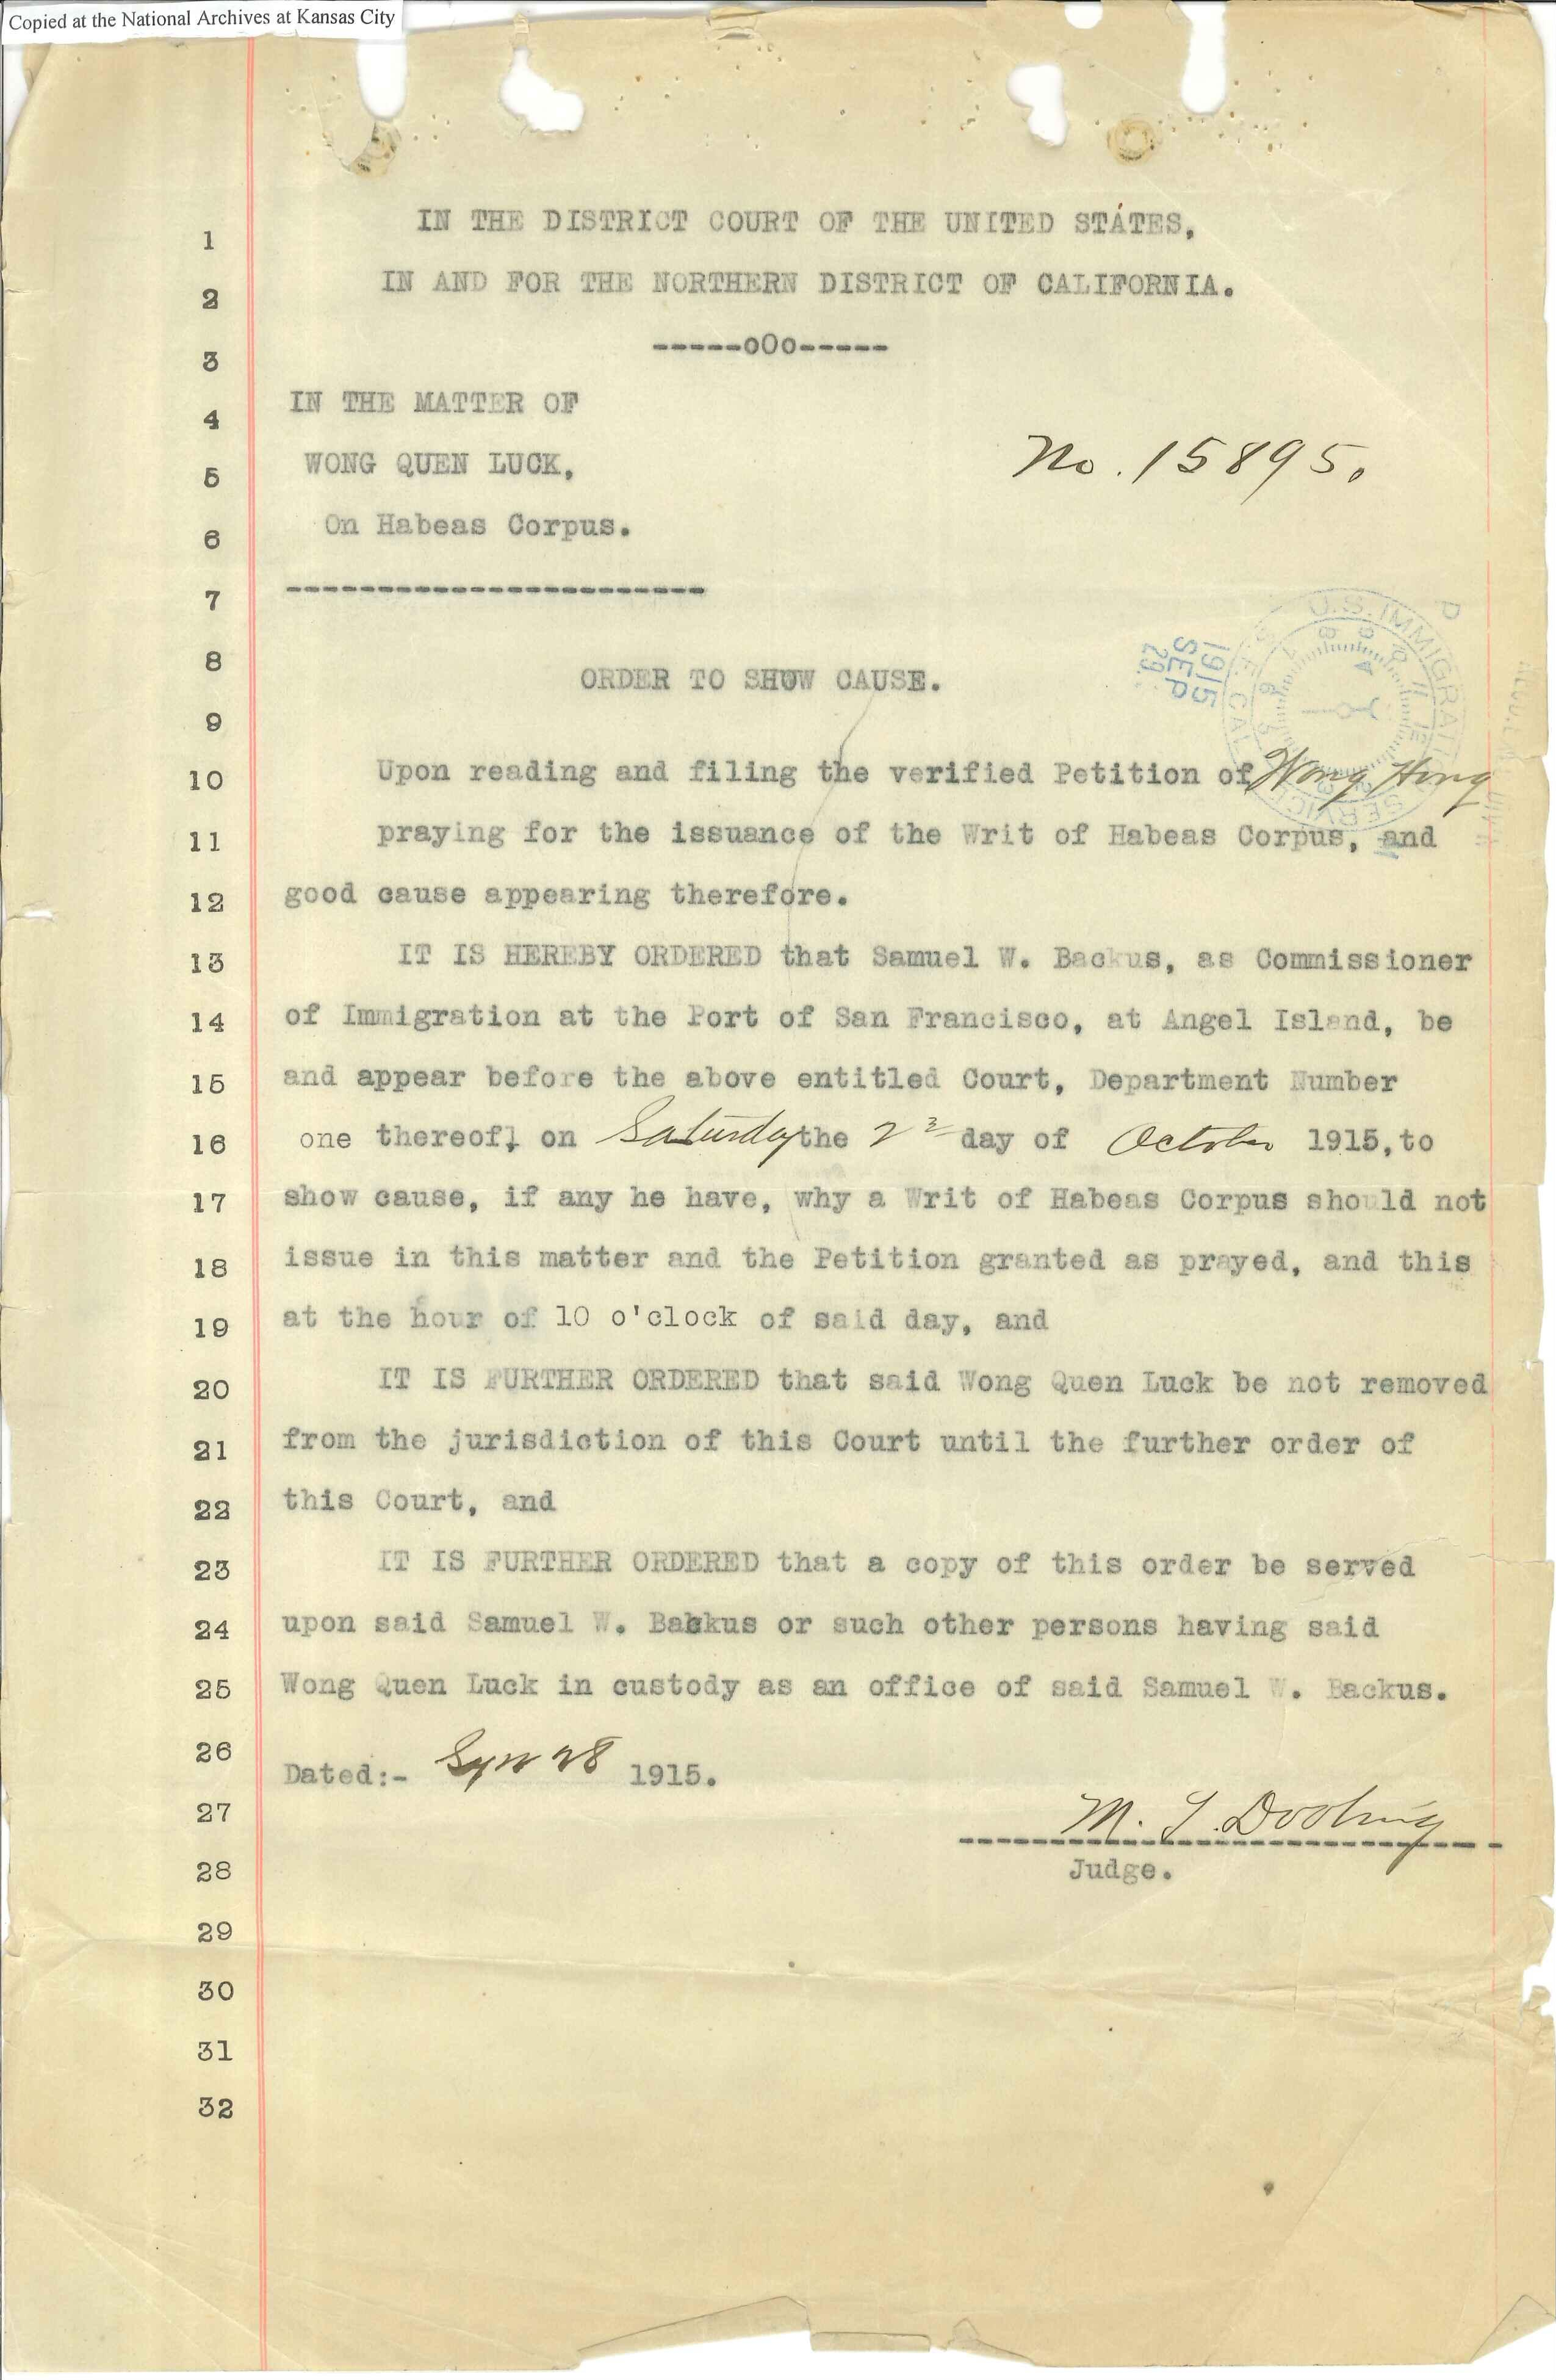 Copied at the National Archives at Kansas City
1 IN THE DISTRICT COURT OF THE UNITED STATES,
2 IN AND FOR THE NORTHERN DISTRICT OF CALIFORNIA.
3 -----oOo-----
4 IN THE MATTER OF
5 WONG QUEN LUCK, No. 15895.
6 On Habeas Corpus.
7 -----------------------
U.S. IMMIGRATION SERVICE
1915
SEP
29
8 ORDER TO SHOW CAUSE.
9
10 Upon reading and filing the verified Petition of Wong Hong
11 praying for the issuance of the Writ of Habeas Corpus, and
12 good cause appearing therefore.
13 IT IS HEREBY ORDERED that Samuel W. Backus, as Commissioner
14 of Immigration at the Port of San Francisco, at Angel Island, be
15 and appear before the above entitled Court, Department Number
16 one thereof, on Saturday the 2 day of October 1915, to
17 show cause, if any he have, why a Writ of Habeas Corpus should not
18 issue in this matter and the Petition granted as prayed, and this
19 at the hour of 10 o'clock of said day, and
20 IT IS FURTHER ORDERED that said Wong Quen Luck be not removed
21 from the jurisdiction of this Court until the further order of
22 this Court, and
23 IT IS FURTHER ORDERED that a copy of this order be served
24 upon said Samuel W. Backus or such other persons having said
25 Wong Quen Luck in custody as an office of said Samuel W. Backus.
26 Dated:- Sept 28 1915.
27 M. T. Dooling
28 Judge.
29
30
31
32